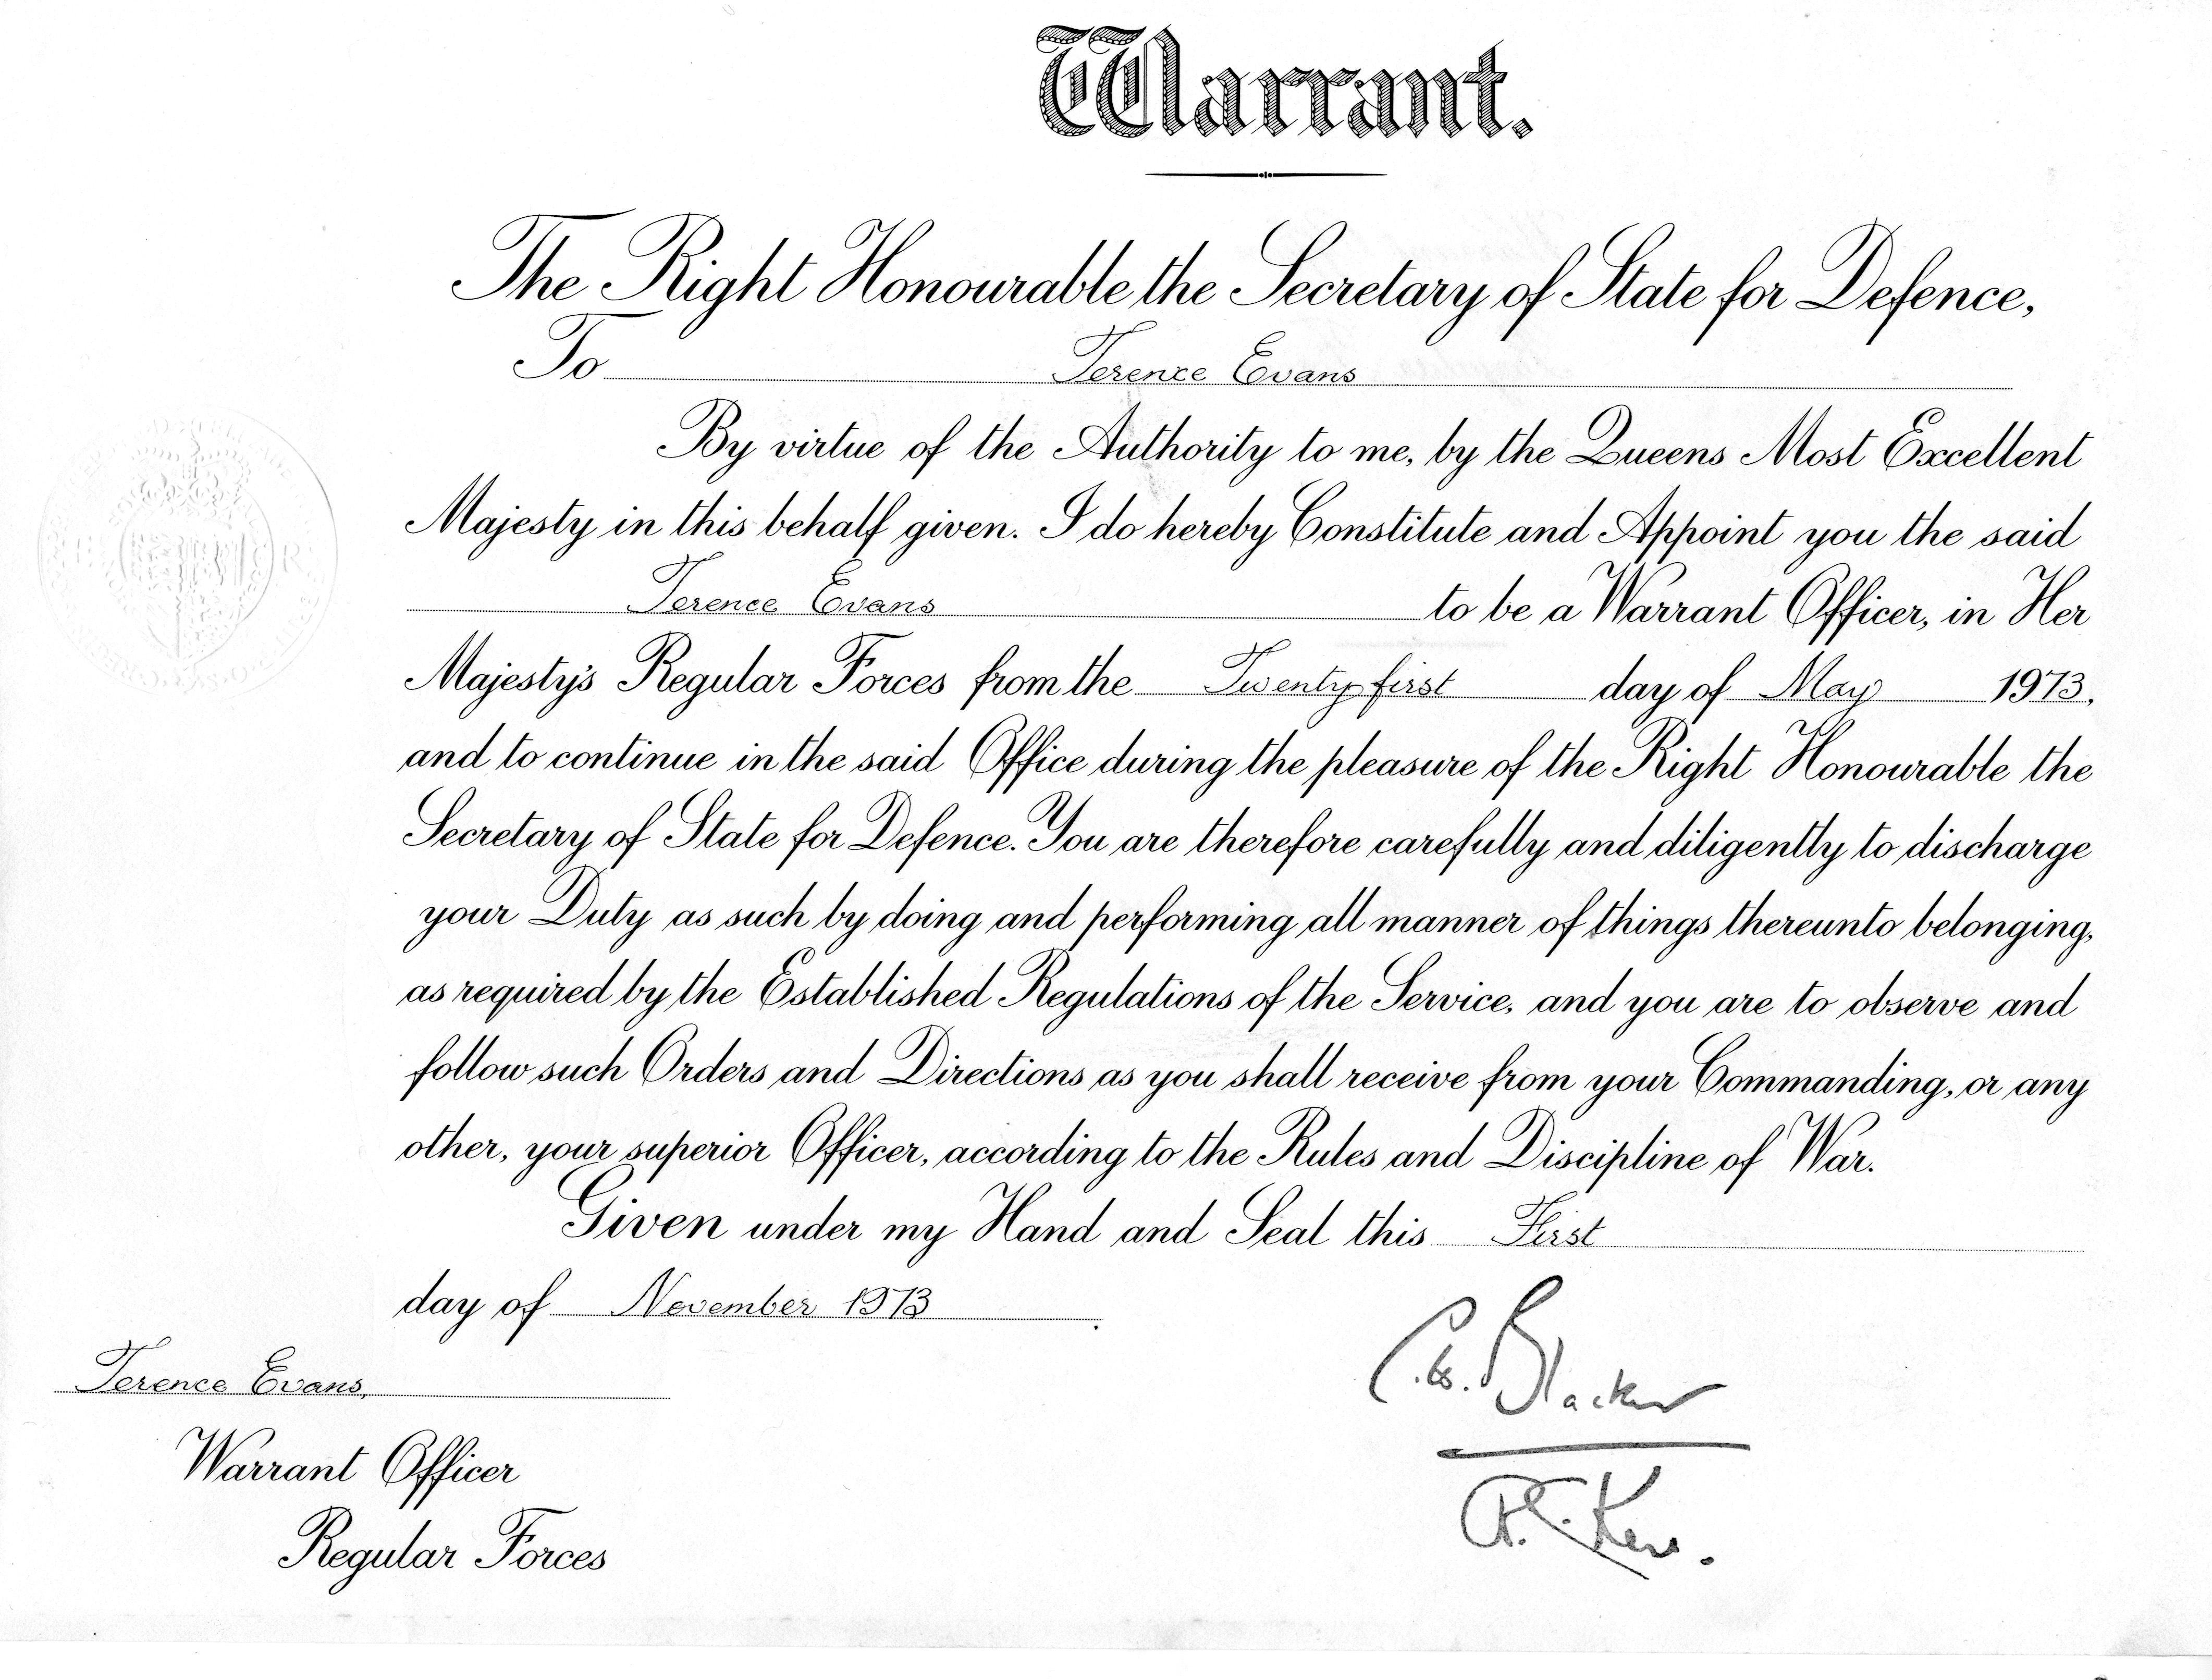 Warrant.
The Right Honourable the Secretary of State for Defence,
To Terence Evans
By virtue of the Authority to me, by the Queens Most Excellent
Majesty in this behalf given. I do hereby Constitute and Appoint you the said
Terence Evans to be a Warrant Officer, in Her
Majesty's Regular Forces from the Twenty first day of May 1973,
and to continue in the said Office during the pleasure of the Right Honourable the
Secretary of State for Defence. You are therefore carefully and diligently to discharge
your Duty as such by doing and performing all manner of things thereunto belonging,
as required by the Established Regulations of the Service, and you are to observe and
follow such Orders and Directions as you shall receive from your Commanding, or any
other, your superior Officer, according to the Rules and Discipline of War.
Given under my Hand and Seal this First
day of November 1973.
Terence Evans,
Warrant Officer
Regular Forces
Blacker